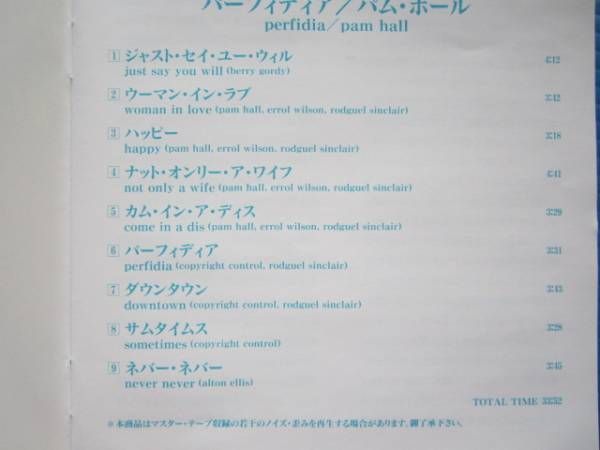 パーフィディア／パム・ホール
perfidia/pam hall
1 ジャスト・セイ・ユー・ウィル 4:12
just say you will (berry gordy)
2 ウーマン・イン・ラブ 3:42
woman in love (pam hall, errol wilson, rodguel sinclair)
3 ハッピー 3:18
happy (pam hall, errol wilson, rodguel sinclair)
4 ナット・オンリー・ア・ワイフ 4:41
not only a wife (pam hall, errol wilson, rodguel sinclair)
5 カム・イン・ア・ディス 3:29
come in a dis (pam hall, errol wilson, rodguel sinclair)
6 パーフィディア 3:31
perfidia (copyright control, rodguel sinclair)
7 ダウンタウン 3:43
downtown (copyright control, rodguel sinclair)
8 サムタイムス 3:28
sometimes (copyright control)
9 ネバー・ネバー 3:45
never never (alton ellis)
TOTAL TIME 33:52
※本商品はマスター・テープ収録の若干のノイズ・歪みを再生する場合があります。御了承下さい。